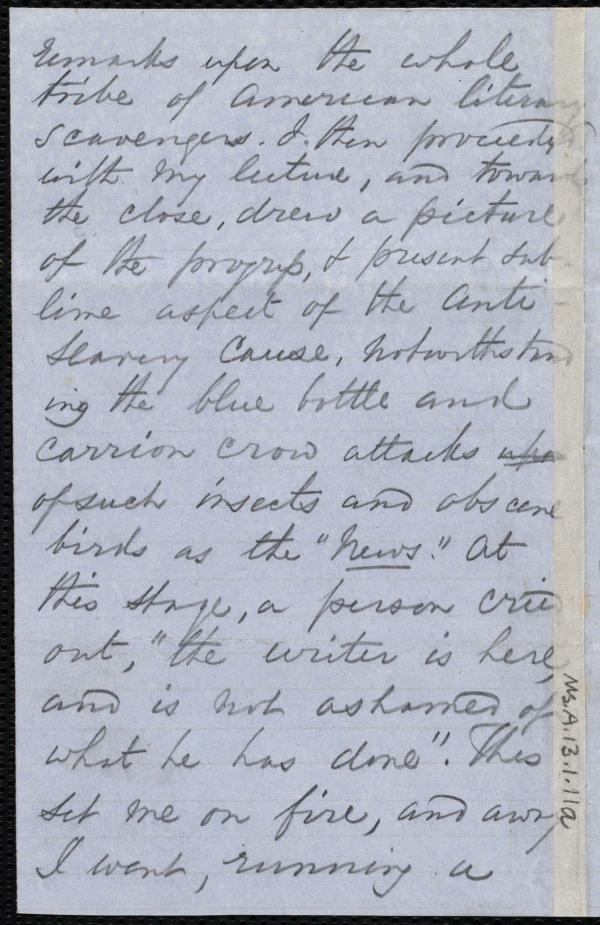 remarks upon the whole
tribe of American literary
scavengers. I then proceeded
with my lecture, and toward
the close, drew a picture
of the progress, & present sub-
lime aspect of the Anti-
Slavery Cause, notwithstand
ing the blue bottle and
carrion crow attacks upon
of such insects and obscene
birds as the "News." At
this stage, a person cried
out, "the writer is here,
and is not ashamed of
what he has done". This
set me on fire, and away
I went, running a
Ms.A.13.1.11a